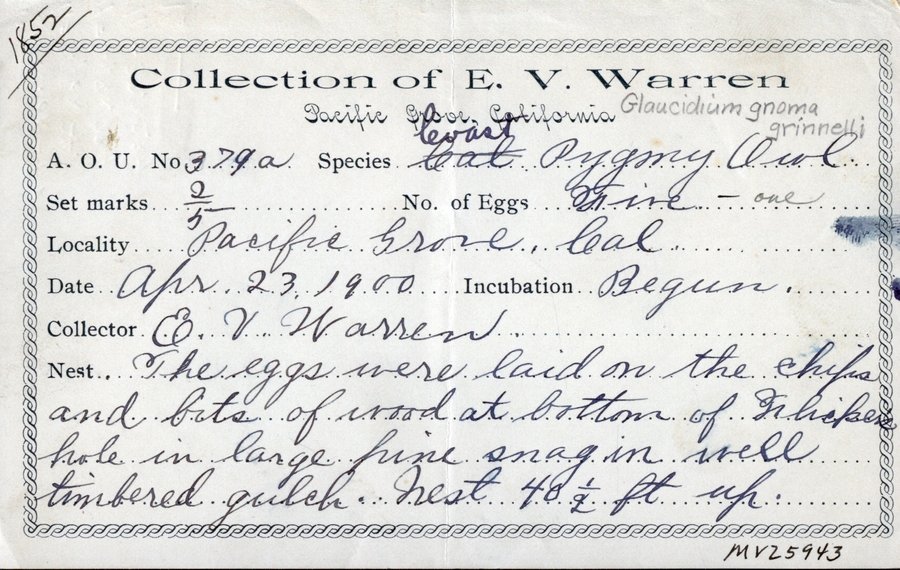 1852
Collection of E. V. Warren
Pacific Grove, California
Glaucidium gnoma
grinnelli
Coast
A. O. U. No. 379a Species Cal Pygmy Owl
Set marks 2/5 No. of Eggs Five - one
Locality Pacific Grove, Cal.
Date Apr. 23, 1900 Incubation Begun.
Collector E. V. Warren
Nest. The eggs were laid on the chips
and bits of wood at bottom of Flicker
hole in large pine snag in well
timbered gulch. Nest 40 ½ ft up.
MVZ5943